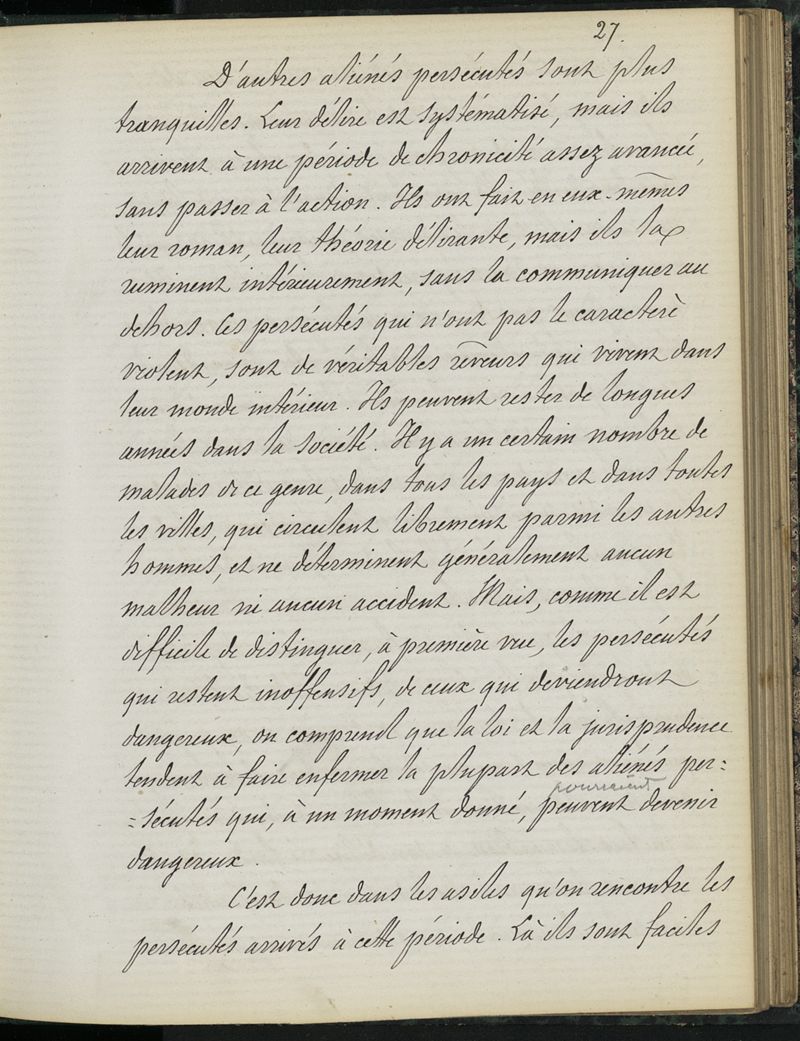 27.
D'autres aliénés persécutés sont plus
tranquilles. Leur délire est systématisé, mais ils
arrivent à une période de chronicité assez avancée,
sans passer à l'action. Ils ont fait en eux-mêmes
leur roman, leur théorie délirante, mais ils la
ruminent intérieurement, sans la communiquer au
dehors. Ces persécutés qui n'ont pas le caractère
violent, sont de véritables rêveurs qui vivent dans
leur monde intérieur. Ils peuvent rester de longues
années dans la société. Il y a un certain nombre de
malades de ce genre, dans tous les pays et dans toutes
les villes, qui circulent librement parmi les autres
hommes, et ne déterminent généralement aucun
malheur ni aucun accident. Mais, comme il est
difficile de distinguer, à première vue, les persécutés
qui restent inoffensifs, de ceux qui deviendront
dangereux, on comprend que la loi et la jurisprudence
tendent à faire enfermer la plupart des aliénés per=
pourraient
=sécutés qui, à un moment donné, peuvent devenir
dangereux.
C'est donc dans les asiles qu'on rencontre les
persécutés arrivés à cette période. Là ils sont faciles